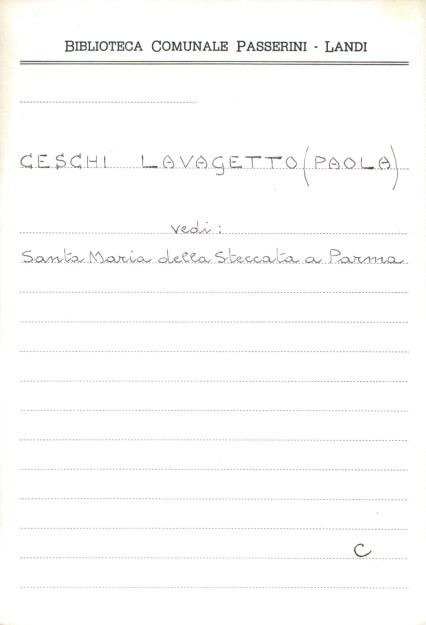 BIBLIOTECA COMUNALE PASSERINI - LANDI
CESCHI LAVAGETTO (PAOLA)
vedi:
Santa Maria della Steccata a Parma
C